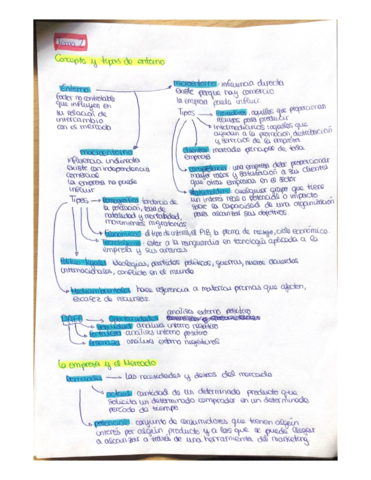 Tema 2
Concepto y tipos de entorno
Entorno
factor no controlable
que influyen en
su relación de
intercambio
con el mercado
microentorno: influencia directa
existe porque hay comercio
la empresa puede influir
Tipos
Proveedores: aquellos que proporcionan
recursos para producir
Intermediarios: aquellos que
ayudan a la promoción, distribución
y servicios de la empresa
Clientes: mercado principal de toda
empresa
competencia: una empresa debe proporcionar
mayor valor y satisfacción a sus clientes
que otras empresas en el sector
stakeholders: cualquier grupo que tiene
un interés real o potencial o impacto
sobre la capacidad de una organización
para alcanzar sus objetivos.
macroentorno
influencia indirecta
existe con independencia
comercial
la empresa no puede
influir
Tipos
Demográfico: tendencia de
la población, tasa de
natalidad y mortalidad,
movimientos migratorios
Económico: el tipo de interés, el PIB, la prima de riesgo, ciclo económico
Tecnológico: estar a la vanguardia en tecnología aplicada a la
empresa y sus avances
Político-legales: ideologías, partidos políticos, guerras, nuevos acuerdos
internacionales, conflicto en el mundo
Medioambientales: hace referencia a materias primas que afectan,
escasez de recursos.
DAFO
Oportunidades análisis externo positivo
Debilidad: análisis interno negativo
Fortaleza: análisis interno positivo
Amenaza: análisis interno negativos
La empresa y el Mercado
Demanda las necesidades y deseos del mercado
actual: cantidad de un determinado producto que
solicita un determinado comprador en un determinado
período de tiempo
potencial: conjunto de consumidores que tienen algún
interés por algún producto y a los que se puede llegar
a alcanzar a través de una herramienta del marketing